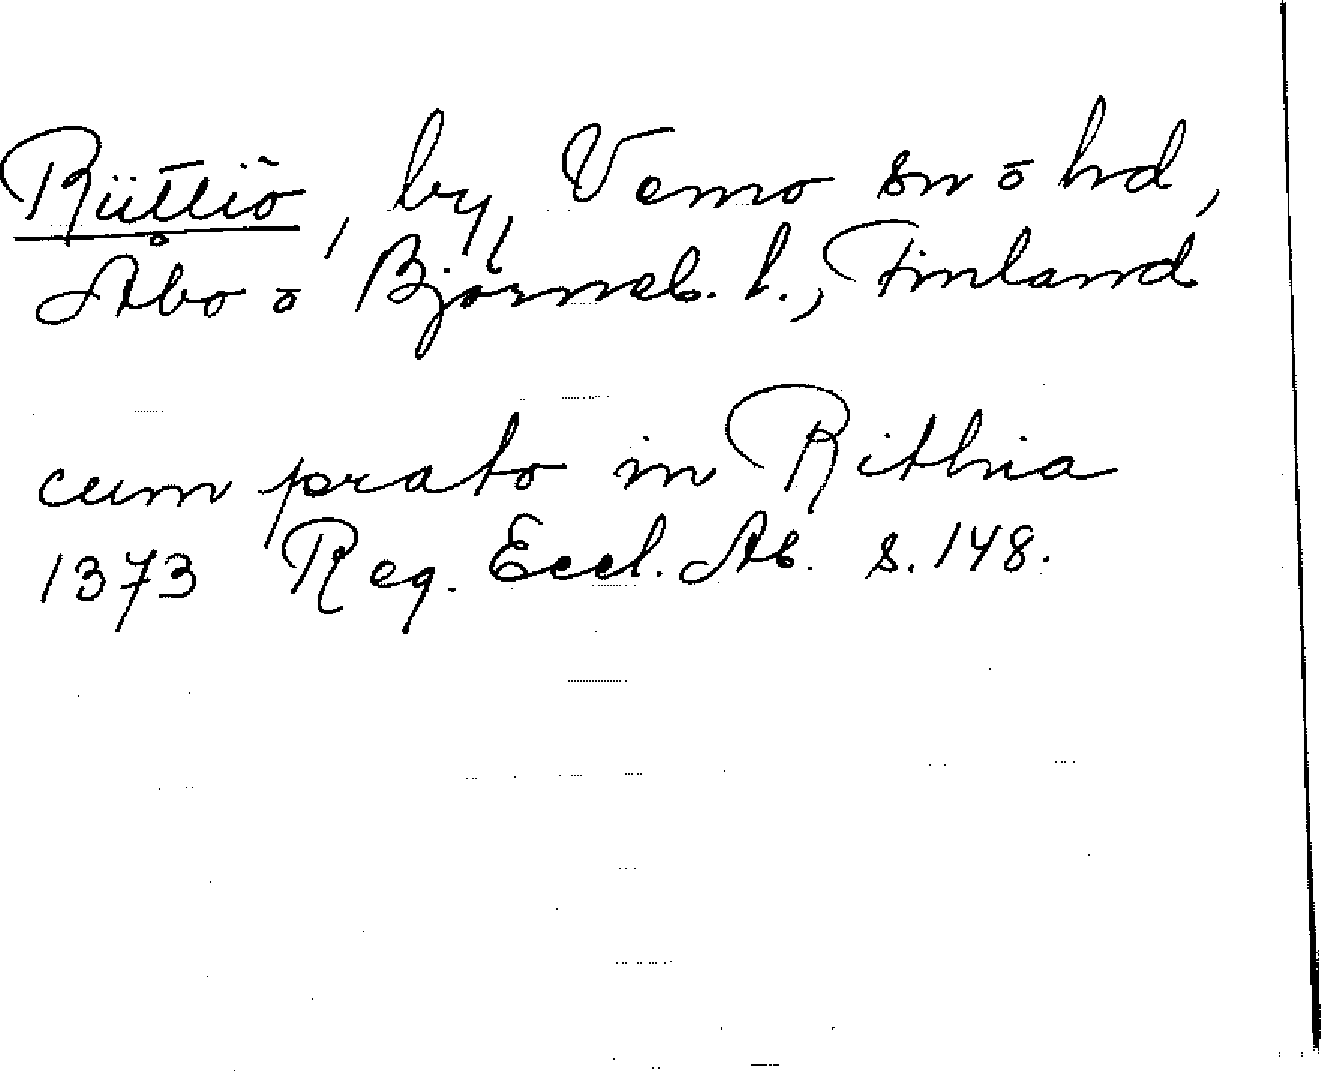 Riittiö, by, Vemo sn o hd,
Åbo o Björneb. l., Finland
cum prato in Rithia
1373 Reg. Eccl. Ab. s. 148.